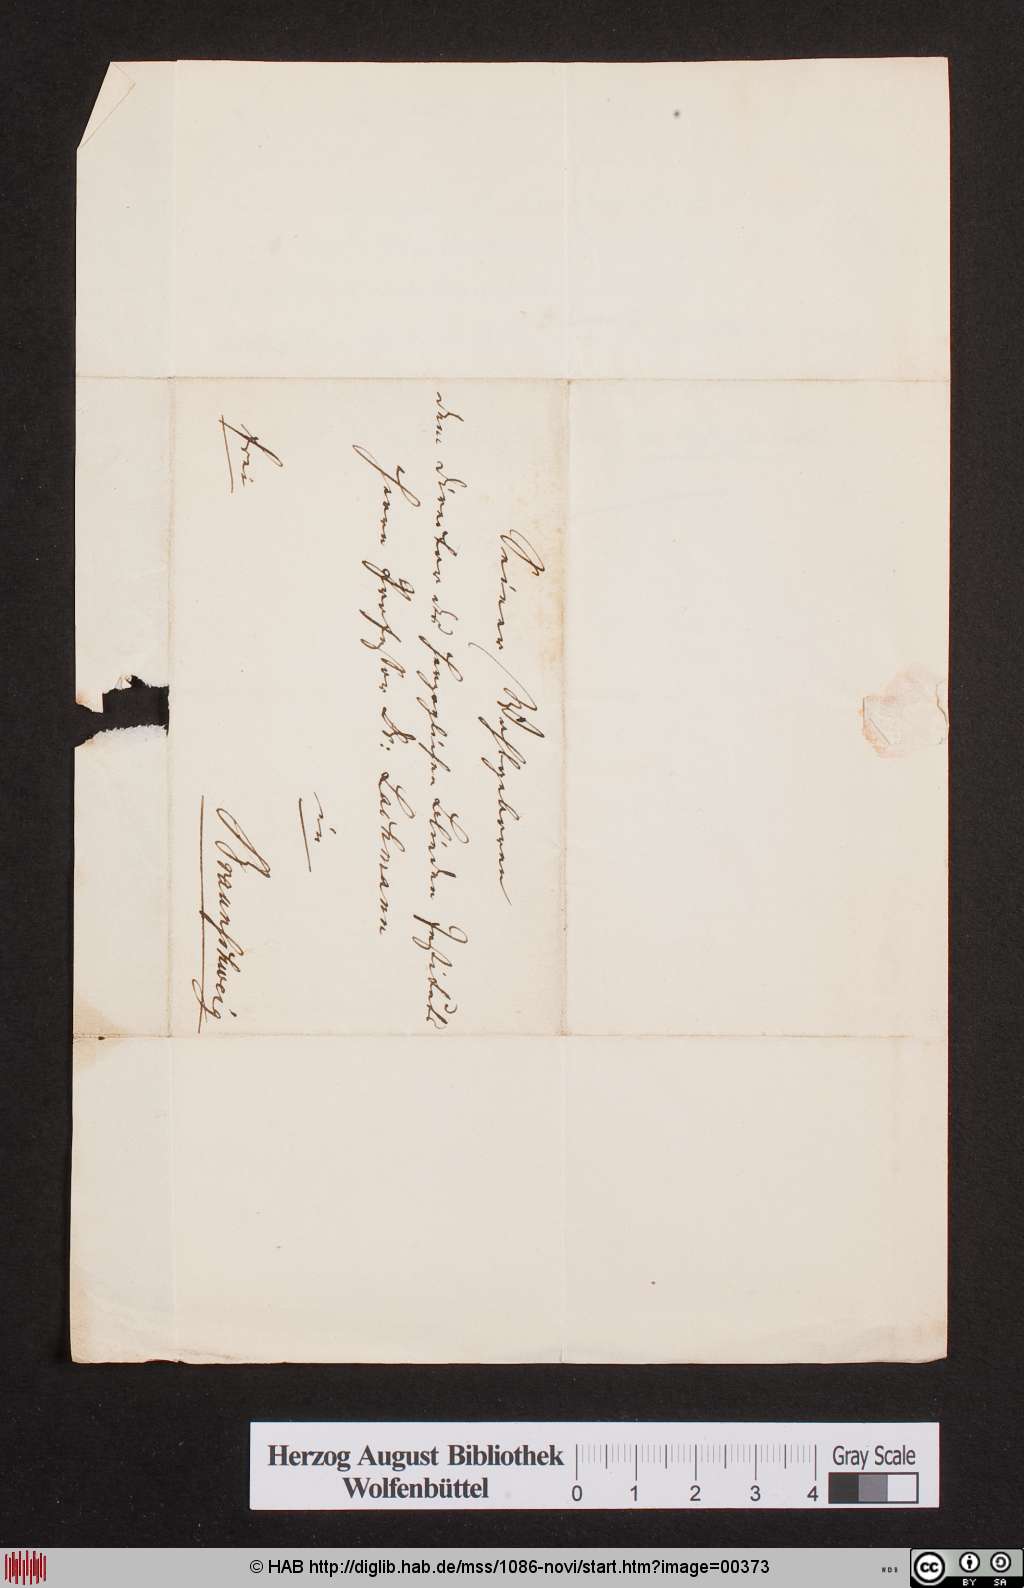 Seiner Wohlgeboren
dem Director des Herzoglichen Blinden Instituts
Herrn Professor Dr. Lachmann
in
frei
Braunschweig
Herzog August Bibliothek
Wolfenbüttel
0 1 2 3 4
Gray Scale
© HAB http://diglib.hab.de/mss/1086-novi/start.htm?image=00373
WDB
cc BY SA